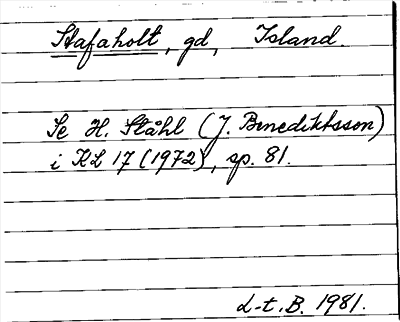 Stafaholt, gd, Island.
Se H. Ståhl (J. Benediktsson)
i KL 17 (1972), sp. 81.
L-t. B. 1981.